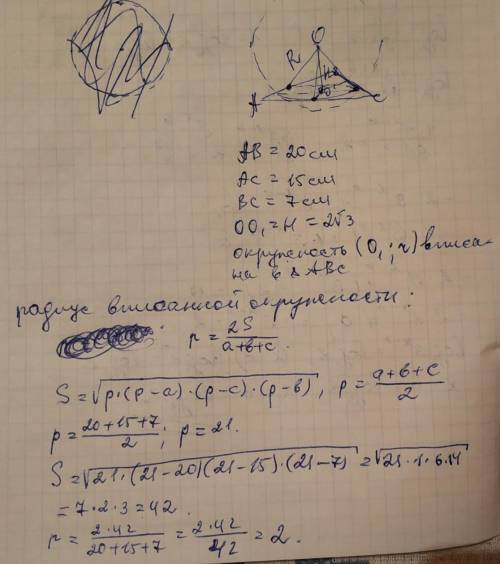 O
R
H
O₁
A
C
AB = 20 см
AC = 15 см
BC = 7 см
OO₁ = H = 2√3
окружность (O₁; r) вписа-
на в Δ ABC
радиус вписанной окружности:
r = 2S/(a+b+c).
S = √(p·(p-a)·(p-c)·(p-b)), p = (a+b+c)/2
p = (20+15+7)/2; p = 21.
S = √(21·(21-20)(21-15)·(21-7)) = √(21·1·6·14)
= 7·2·3 = 42.
r = (2·42)/(20+15+7) = (2·42)/42 = 2.